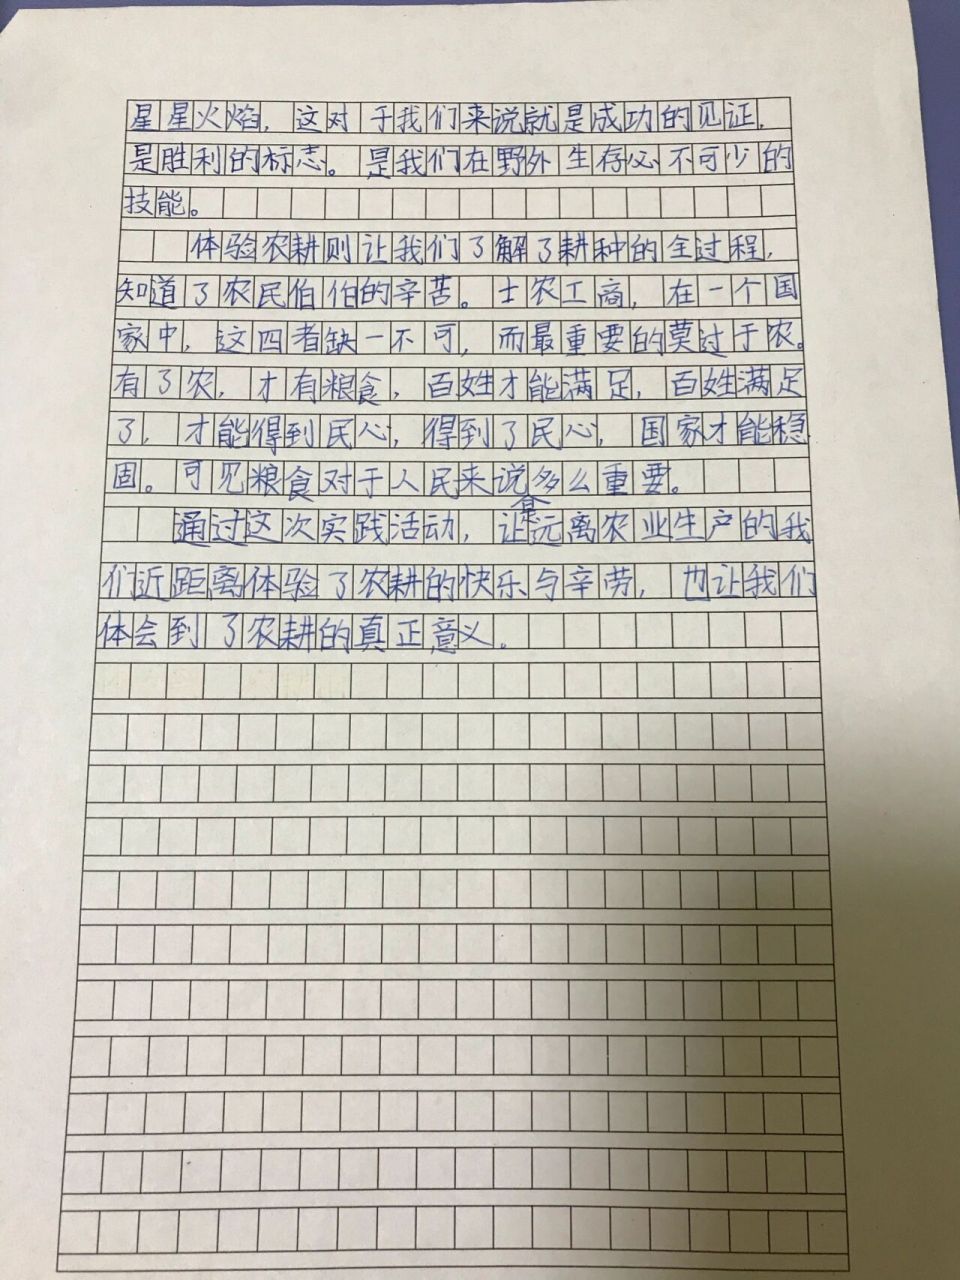 星星火焰，这对于我们来说就是成功的见证，
是胜利的标志。是我们在野外生存必不可少的
技能。
体验农耕则让我们了解了耕种的全过程，
知道了农民伯伯的辛苦。士农工商，在一个国
家中，这四者缺一不可，而最重要的莫过于农。
有了农，才有粮食，百姓才能满足，百姓满足
了，才能得到民心，得到了民心，国家才能稳
固。可见粮食对于人民来说多么重要。
通过这次实践活动，让远离农业生产的我
们近距离体验了农耕的快乐与辛劳，也让我们
体会到了农耕的真正意义。